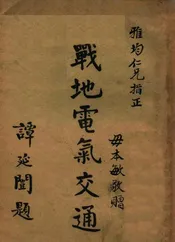 雅均仁兄指正
毋本敏敬贈
戰地電氣交通
譚延闓題